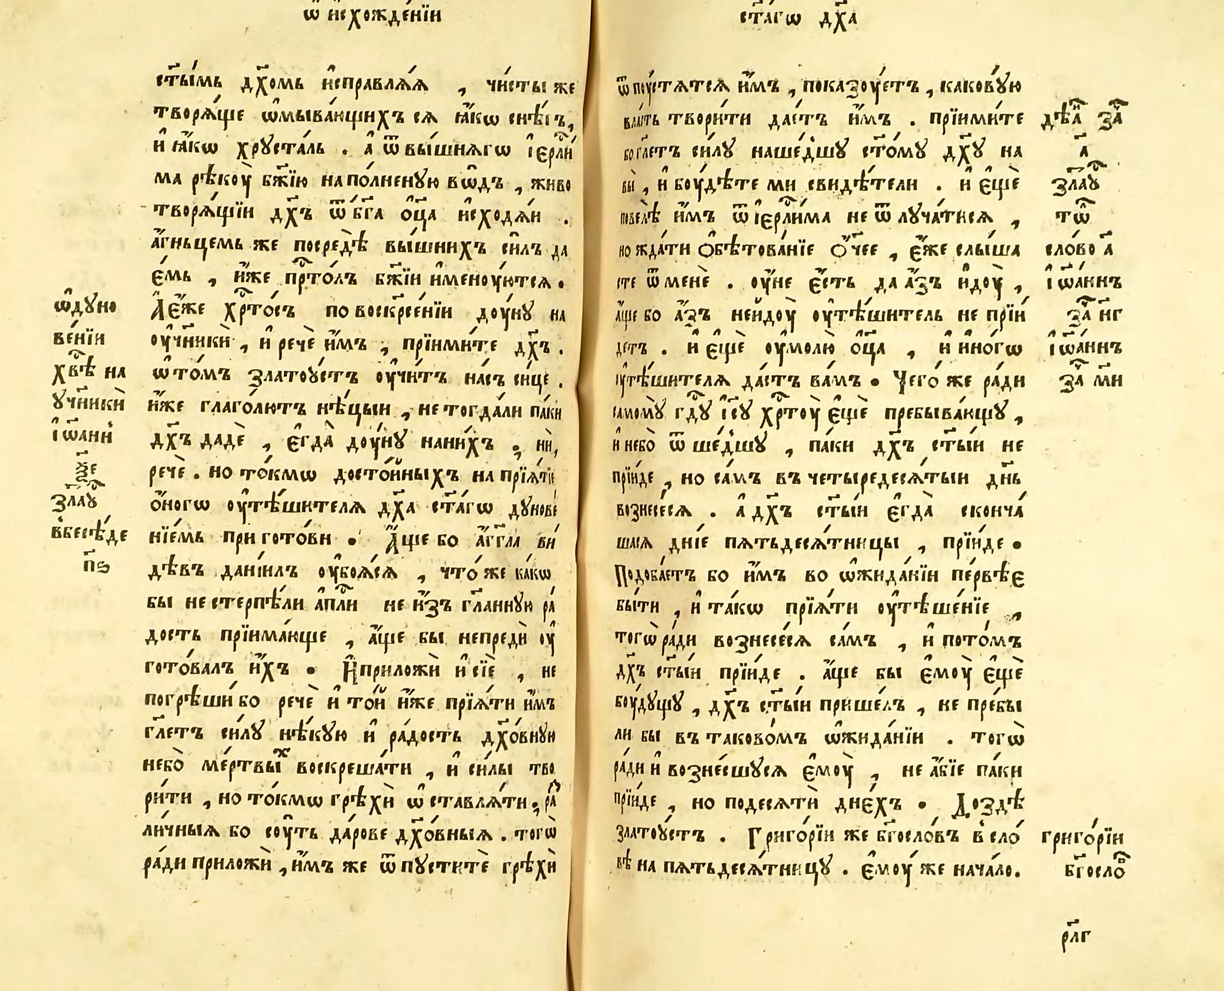 ѿ исхожде́нїи
ст҃ы́мь дх҃омь и҆справлѧ́ѧ , чи́сты же
творѧ́ще ѡ҆мыва́ющихъ сѧ ꙗ҆́кѡ снѣ́гъ,
и҆ ꙗ҆́кѡ хруста́ль . а҆ ѿ вы́шнѧгѡ і҆ерⷭ҇ли́
ма рѣкоу̀ бж҃їю наполненую во́дъ , живо
творѧ́щїи дх҃ъ ѿ бг҃а ѻ҆ц҃а и҆сходѧ́и .
а҆́гньцемь же посредѣ̀ вы́шнихъ си́лъ да
е҆́мь , и҆̀же прⷭ҇то́лъ бж҃їи и҆менꙋ́ютсѧ .
А҆е҆́же хрⷭ҇то́съ по воскрⷭ҇е́нїи доу́нꙋ на
оу҆ч҃никѝ , и҆ речѐ и҆̀мъ , прїими́те дх҃ъ .
ѡ҆ то́мъ златоу́стъ оу҆чи́тъ на́съ си́це .
и҆́же глаго́лютъ нѣ́цыи , не тогда́ли па́ки
дх҃ъ дадѐ , е҆гда̀ доу́нꙋ на ни́хъ . нѝ,
речѐ . но то́кмѡ досто́йныхъ на прїѧ́тїе
ѻ҆́ногѡ оу҆тѣ́шителѧ дх҃а ст҃а́гѡ дꙋнове́
нїемь приготови . А҆́ще бо а҆́гг҃ла ви
дѣвъ данїи́лъ оу҆боѧ́сѧ , что́ же ка́кѡ
бы не стерпѣ́ли а҆пⷭ҇ли не и҆з̾ гл҃а́нную ра́
дость прїима́юще , а҆́ще бы не предѝ оу҆
гото́валъ и҆́хъ . И҆ приложѝ и҆ сїѐ , не
погрѣши́ бо речѐ и҆ то́й и҆́же прїѧ́ти и҆̀мъ
гл҃етъ си́лꙋ нѣ́кую и҆ ра́дость дх҃о́вную
небо̀ ме́ртвыⷯ воскреша́ти , и҆ си́лы тво
ри́ти , но то́кмѡ грѣхѝ ѡ҆ставлѧ́ти . раⷥ
ли́чныѧ бо соу́ть да́рове дх҃о́вныѧ . тогѡ̀
ра́ди приложѝ , и҆̀мъ же ѿпꙋститѐ грѣхѝ
ѡ҆ дꙋно
ве́нїи
хвⷭ҇ѣ на
оу҆ч҃ники
і҆ѡа́нн
ѯ҃е
злаꙋⷭ҇
в̾бесѣ́де
п҃ѕ
ст҃а́гѡ дх҃а
ѿпꙋ́стѧтсѧ и҆̀мъ , показоу́етъ , какову́ю
вла́сть твори́ти да́стъ и҆̀мъ . прїими́те
бо гл҃етъ си́лꙋ наше́дшꙋ ст҃о́мꙋ дх҃ꙋ на
вы̀ , и҆ боу́дѣте ми свидѣ́тели . и҆ е҆щѐ
повелѣ̀ и҆̀мъ ѿ і҆ерⷭ҇ли́ма не ѿлꙋча́тисѧ ,
но жда́ти ѻ҆бѣтова́нїе ѻ҆́ч҃ее , е҆́же слы́ша
сте ѿ менѐ . оу҆́не е҆́сть да а҆́зъ и҆доу̀ ,
а҆́ще бо а҆́зъ не и҆доу̀ оу҆тѣ́шитель не прїи́
детъ . и҆ е҆щѐ оу҆молю̀ ѻ҆ц҃а , и҆ и҆но́гѡ
оу҆тѣ́шителѧ да́стъ ва́мъ . Чего́ же ра́ди
самомꙋ̀ гдⷭ҇ꙋ і҆с҃ꙋ хрⷭ҇тоу̀ е҆щѐ пребыва́ющꙋ ,
и҆ небо̀ ѿше́дшꙋ , па́ки дх҃ъ ст҃ы́и не
прїи́де , но са́мъ въ четыредесѧ́тыи дн҃ь
вознесе́сѧ . а҆ дх҃ъ ст҃ы́и е҆гда̀ сконча́
шасѧ дні́е пѧтьдесѧ́тницы , прїи́де .
Подоба́етъ бо и҆̀мъ во ѡ҆жида́нїи пе́рвѣе
бы́ти , и҆ та́кѡ прїѧ́ти оу҆тѣше́нїе ,
тогѡ̀ ра́ди вознесе́сѧ са́мъ , и҆ пото́мъ
дх҃ъ ст҃ы́и прїи́де . а҆́ще бы е҆моу̀ е҆щѐ
боу́дꙋщꙋ , дх҃ъ ст҃ы́и прише́лъ , не пребы́
ли бы въ таково́мъ ѡ҆жида́нїи . тогѡ̀
ра́ди и҆ возне́сшꙋсѧ е҆моу̀ , не а҆́бїе па́ки
прїи́де , но по десѧтѝ дне́хъ . Доздѣ̀
златоу́стъ . Григо́рїи же бг҃осло́въ в̾ сло́
вѣ на пѧтьдесѧ́тницꙋ . е҆моу́ же нача́ло.
дѣѧⷩ҇ заⷱ҇
а҃
злаꙋⷭ҇
тѡⷨ
сло́во а҃
і҆ѡа́ннъ
заⷱ҇ нг
і҆ѡа́ннъ
заⷱ҇ мн
григо́рїи
бг҃осло́въ
рлг